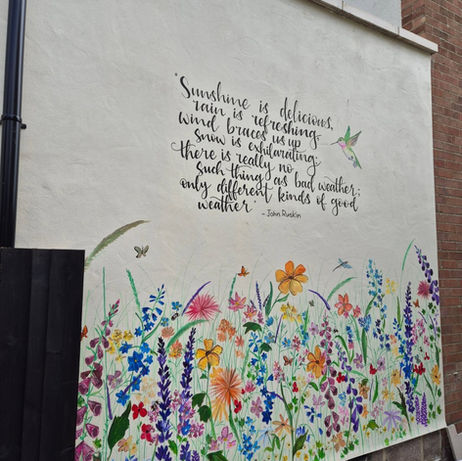 "Sunshine is delicious,
rain is refreshing,
wind braces us up
snow is exhilarating;
there is really no
such thing as bad weather;
only different kinds of good
weather"
- John Ruskin